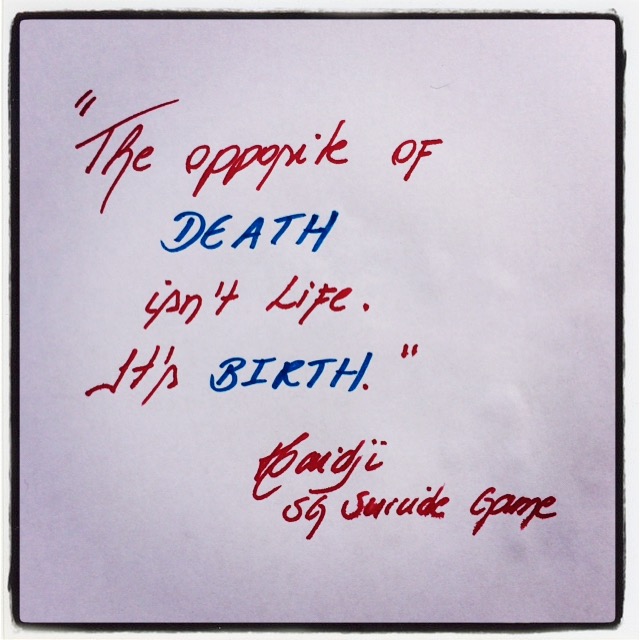 "The opposite of
DEATH
isn't Life.
It's BIRTH."
Haidji
SG Suicide Game